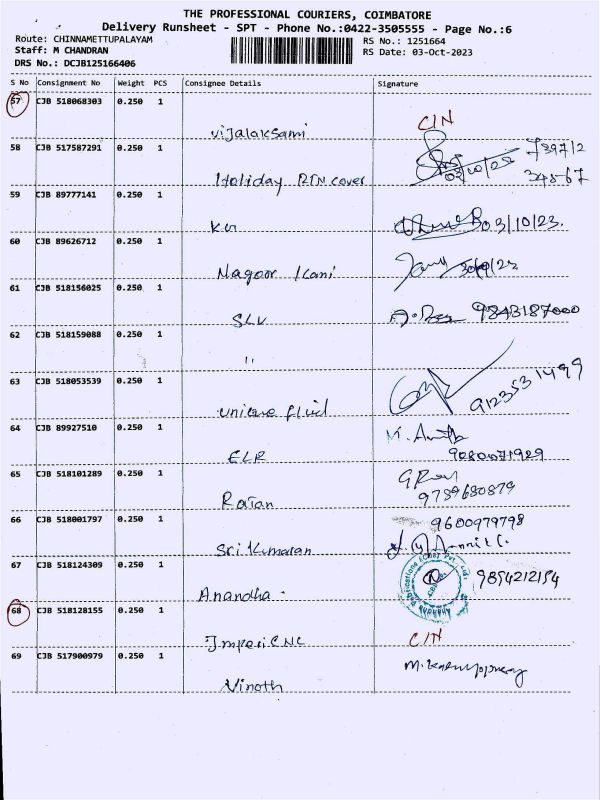 THE PROFESSIONAL COURIERS, COIMBATORE
Delivery Runsheet - SPT - Phone No.:0422-3505555 - Page No.:6
Route: CHINNAMETTUPALAYAM RS No.: 1251664
Staff: M CHANDRAN RS Date: 03-Oct-2023
DRS No.: DCJB125166406
S No Consignment No Weight PCS Consignee Details Signature
57 CJB 518068303 0.250 1
Vijalaksami CIN
58 CJB 517587291 0.250 1
Holiday RTN cover 03/10/23
59 CJB 89777141 0.250 1
03/10/23.
60 CJB 89626712 0.250 1
Nagoor Kani
61 CJB 518156025 0.250 1
SLV 9843187000
62 CJB 518159088 0.250 1
"
63 CJB 518053539 0.250 1
unique fluid 9123531499
64 CJB 89927510 0.250 1
ELR
65 CJB 518101289 0.250 1
Rajan 9789680879
66 CJB 518001797 0.250 1
9600979798
Sri Kumaran
67 CJB 518124309 0.250 1
Anandha 9894212154
68 CJB 518128155 0.250 1
Imperi CNC CIN
69 CJB 517900979 0.250 1
Vinoth